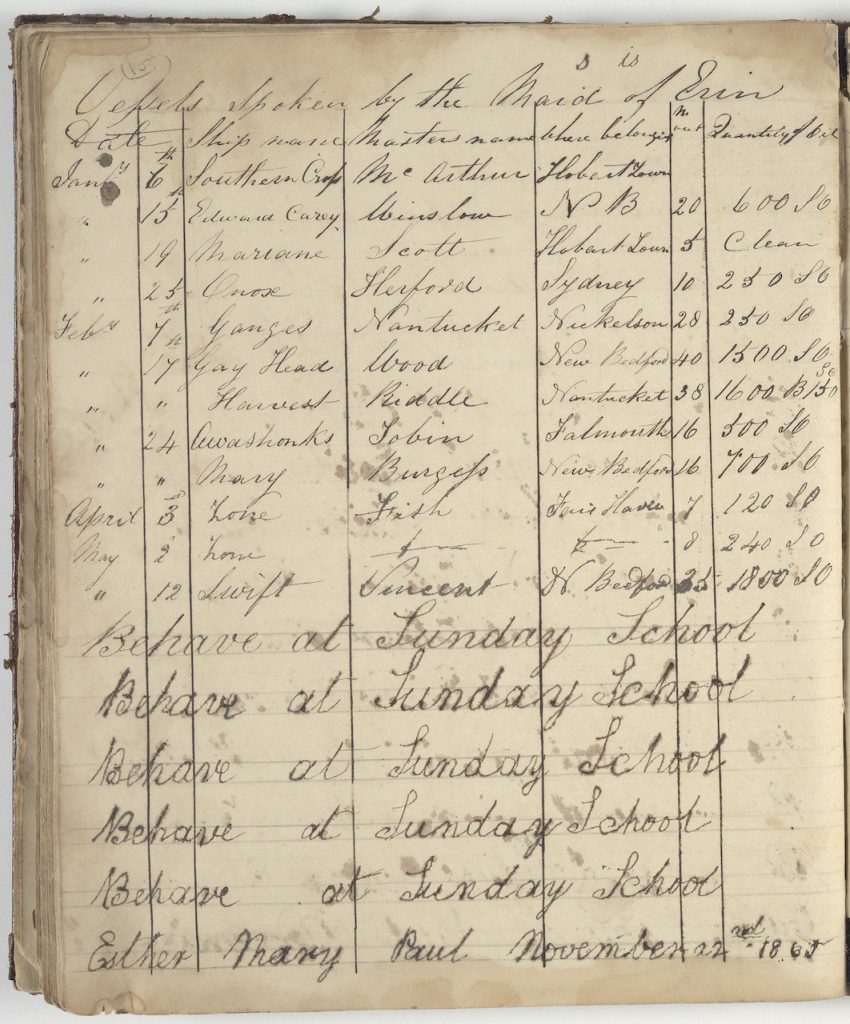 s is
Vessels Spoken by the Maid of Erin
Date Ship name Masters name where belonging M out Quantity of Oil
Jany 6th Southern Cross McArthur Hobart Town
" 15th Edward Carey Winslow N B 20 600 SO
" 19 Mariane Scott Hobart Town 5 Clean
" 25 Onox Herford Sydney 10 250 SO
Feby 7th Ganges Nantucket Nickelson 28 250 SO
" 17th Gay Head Wood New Bedford 40 1500 SO
" " Harvest Riddle Nantucket 38 1600 B 150 SO
" 24 Awashonks Tobin Falmouth 16 500 SO
" " Mary Burgess New Bedford 16 700 SO
April 3d Zone Fish Fair Haven 7 120 SO
May 2 Zone 8 240 SO
" 12 Swift Vincent N Bedford 35 1800 SO
Behave at Sunday School
Behave at Sunday School
Behave at Sunday School
Behave at Sunday School
Behave at Sunday School
Esther Mary Paul November 22nd 1865